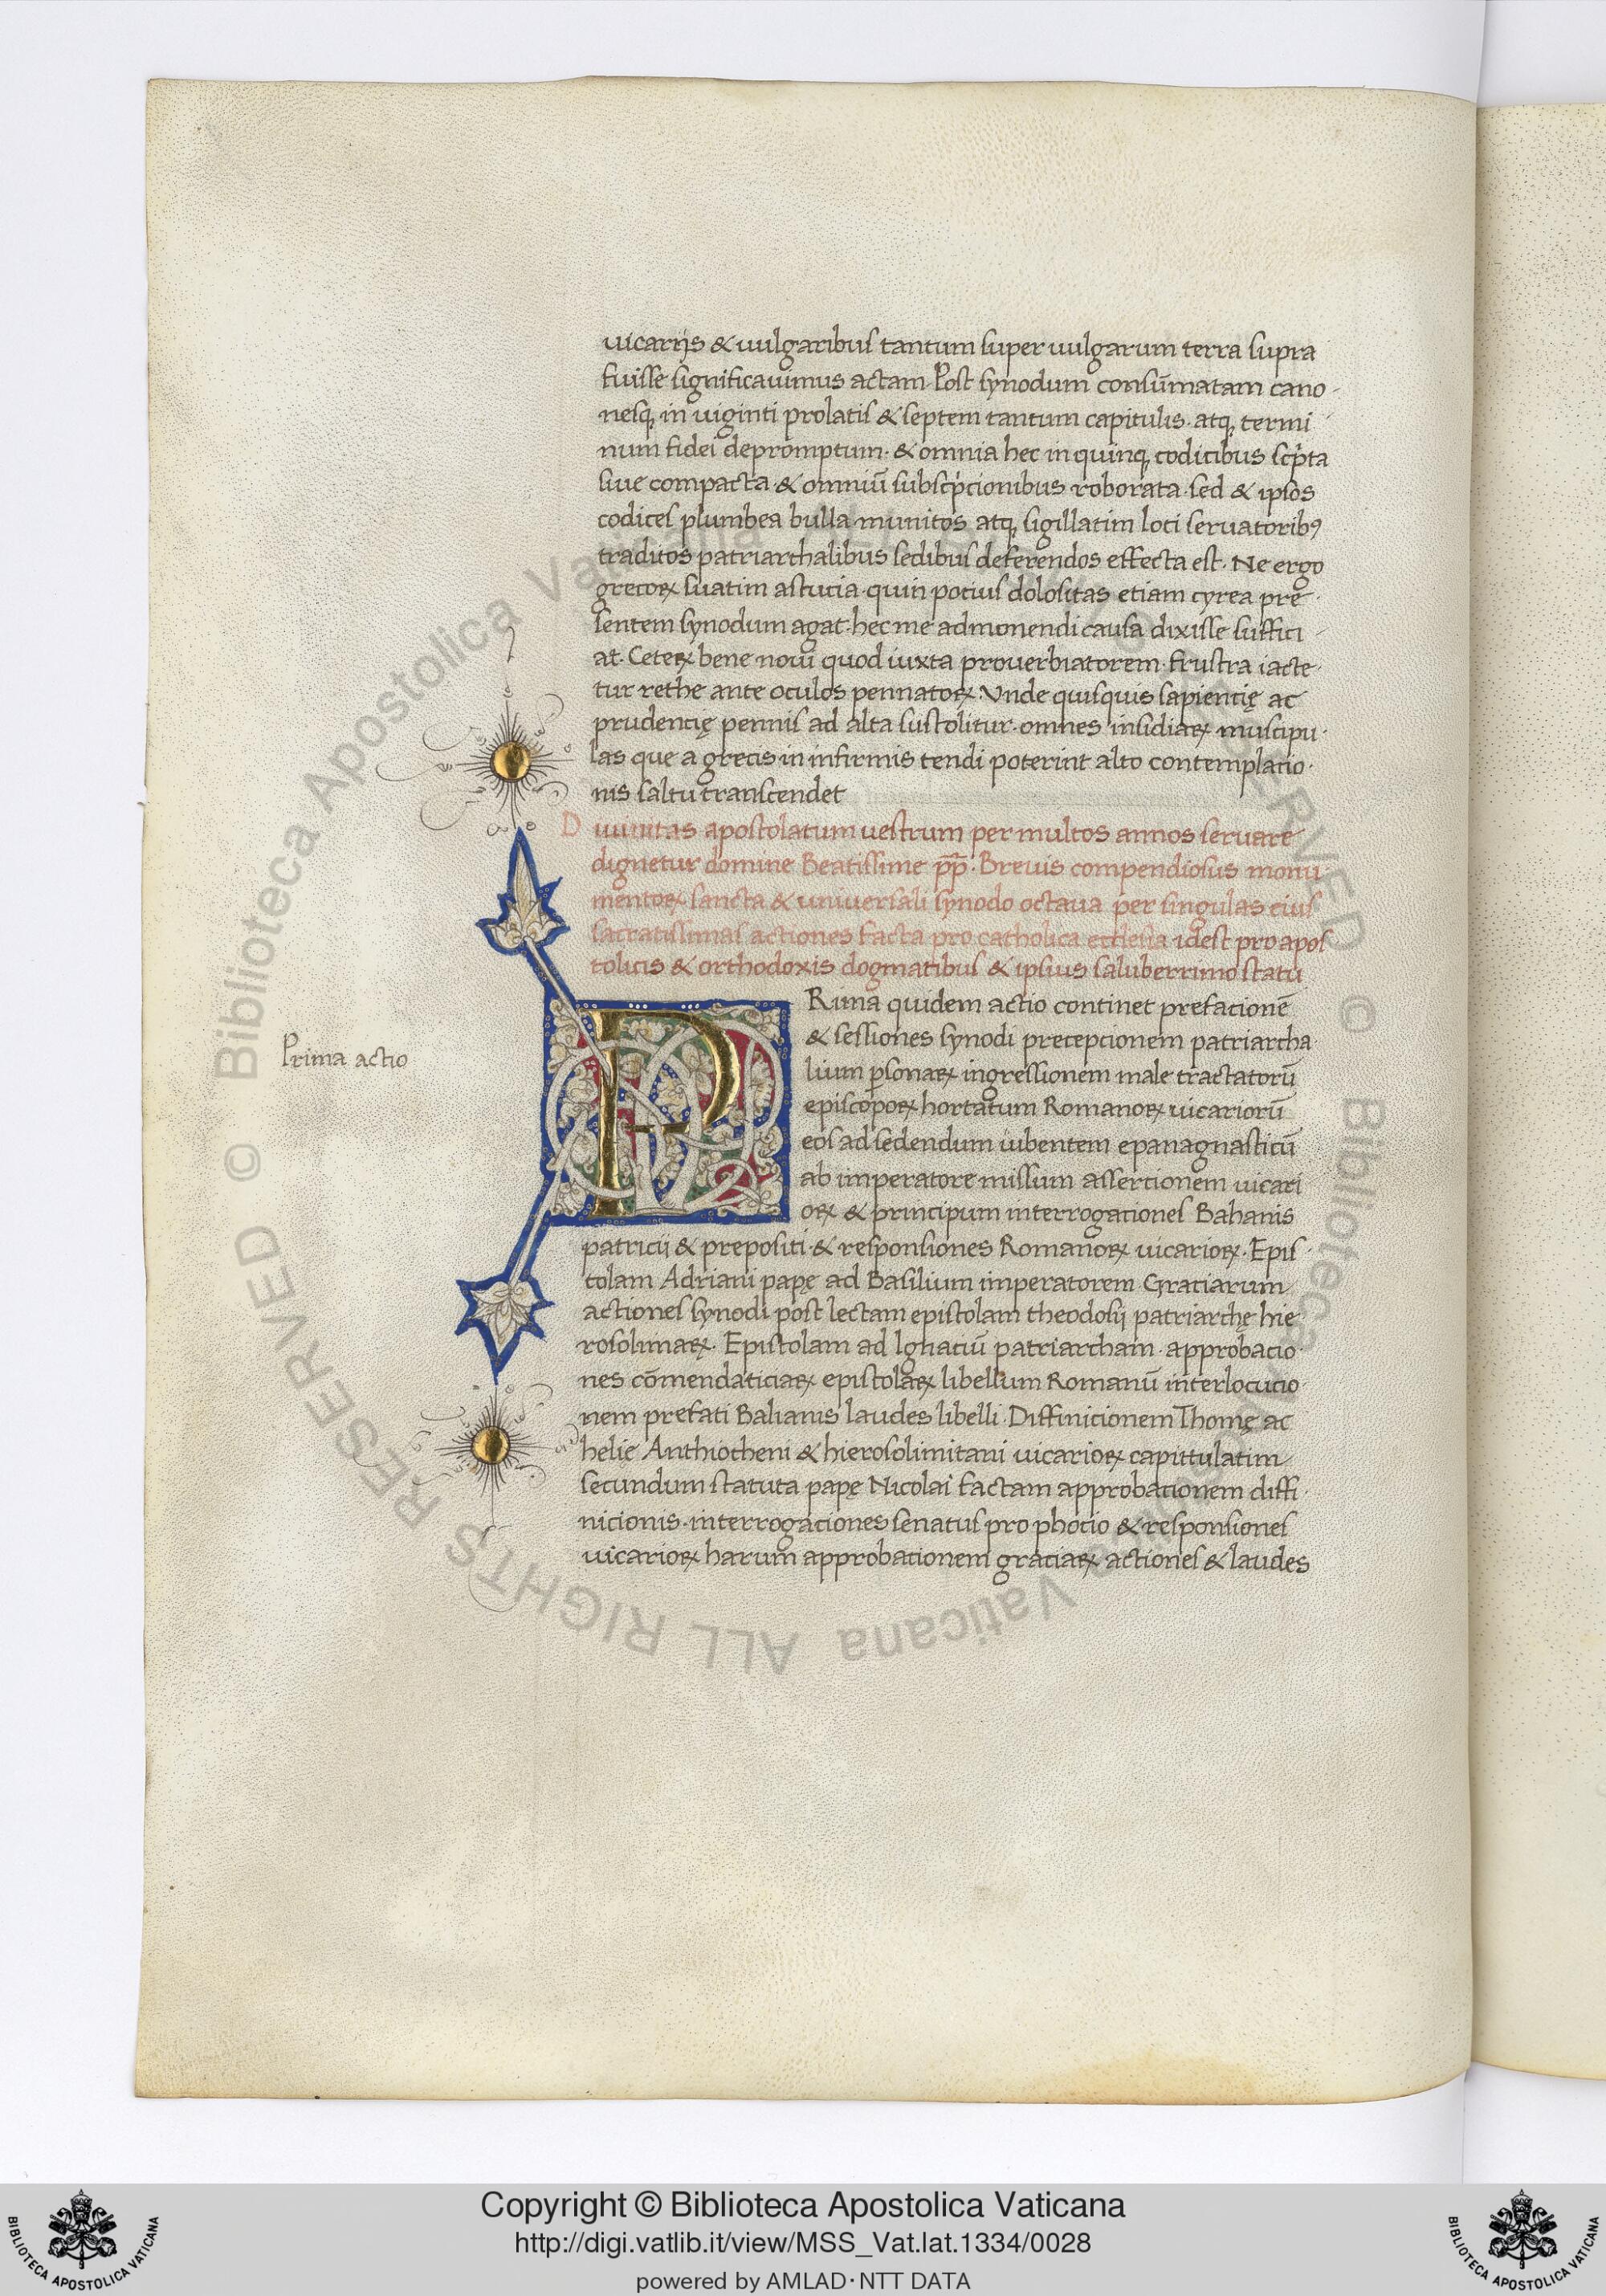 uicarijs & uulgaribus tantum super uulgarum terra supra
fuisse significauimus actam. Post synodum consūmatam cano-
nesq; in uiginti prolatis & septem tantum capitulis. atq; termi
num fidei depromptum. & omnia hec in quinq; codicibus scp̄ta
siue compacta. & omniū subscp̄cionibus roborata. sed & ipsos
codices plumbea bulla munitos atq; sigillatim loci seruatoribꝰ
traditos patriarchalibus sedibus deferendos effecta est. Ne ergo
grecoꝝ suatim astucia. quin potius dolositas etiam cyrea pre-
sentem synodum agat. hec me admonendi causa dixisse suffici-
at. Ceteꝝ bene noui quod iuxta prouerbiatorem. frustra iacte-
tur rethe ante oculos pennatoꝝ Vnde quisquis sapiencię ac
prudencię pennis ad alta sustolitur. omnes insidiaꝝ muscipu-
las que a grecis in infirmis tendi poterint alto contemplacio-
nis saltu transcendet
D iuinitas apostolatum uestrum per multos annos seruare
dignetur domine Beatissime p̄p̄. Breuis compendiosus monu-
mentoꝝ sancta & uniuersali synodo octaua per singulas eius
sacratissimas actiones facta pro catholica ecclesia idest pro apos
tolicis & orthodoxis dogmatibus & ipsius saluberrimo statu
Prima actio
PRima quidem actio continet prefacionē
& sessiones synodi precepcionem patriarcha-
lium p̱sonaꝝ ingressionem male tractatorū
episcopoꝝ hortatum Romanoꝝ uicariorū
eos ad sedendum iubentem epanagnasticū
ab imperatore missum assercionem uicari
oꝝ & principum interrogaciones Bahanis
patricii & prepositi. & responsiones Romanoꝝ uicarioꝝ. Epis-
tolam Adriani papę ad Basilium imperatorem Graciarum
actiones synodi post lectam epistolam theodosij patriarchę hie
rosolimaꝝ. Epistolam ad Ignaciū patriarcham. approbacio-
nes cōmendaticiaꝝ epistolaꝝ libellum Romanū interlocucio-
nem prefati Bahanis laudes libelli. Diffinicionem Thomę ac
helie Anthiocheni & hierosolimitani uicarioꝝ capittulatim
secundum statuta papę Nicolai factam approbacionem diffi-
nicionis. interrogaciones senatus pro phocio & responsiones
uicarioꝝ harum approbacionem graciaꝝ actiones & laudes
© Biblioteca Apostolica Vaticana ALL RIGHTS RESERVED
Copyright © Biblioteca Apostolica Vaticana
http://digi.vatlib.it/view/MSS_Vat.lat.1334/0028
powered by AMLAD·NTT DATA
BIBLIOTECA APOSTOLICA VATICANA
BIBLIOTECA APOSTOLICA VATICANA